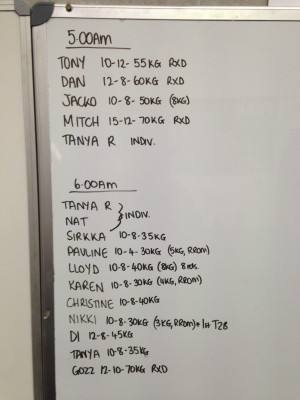 5:00am
TONY 10-12-55KG RXD
DAN 12-8-60KG RXD
JACKO 10-8-50KG (8KG)
MITCH 15-12-70KG RXD
TANYA R INDIV.
6:00am
TANYA R
NAT } INDIV.
SIRKKA 10-8-35KG
PAULINE 10-4-30KG (5KG, RROM)
LLOYD 10-8-40KG (8KG) 8 rds.
KAREN 10-8-30KG (4KG, RROM)
CHRISTINE 10-8-40KG
NIKKI 10-8-30KG (3KG, RROM)
DI 12-8-45KG
TANYA 10-8-35kg
GOZZ 12-10-70KG RXD